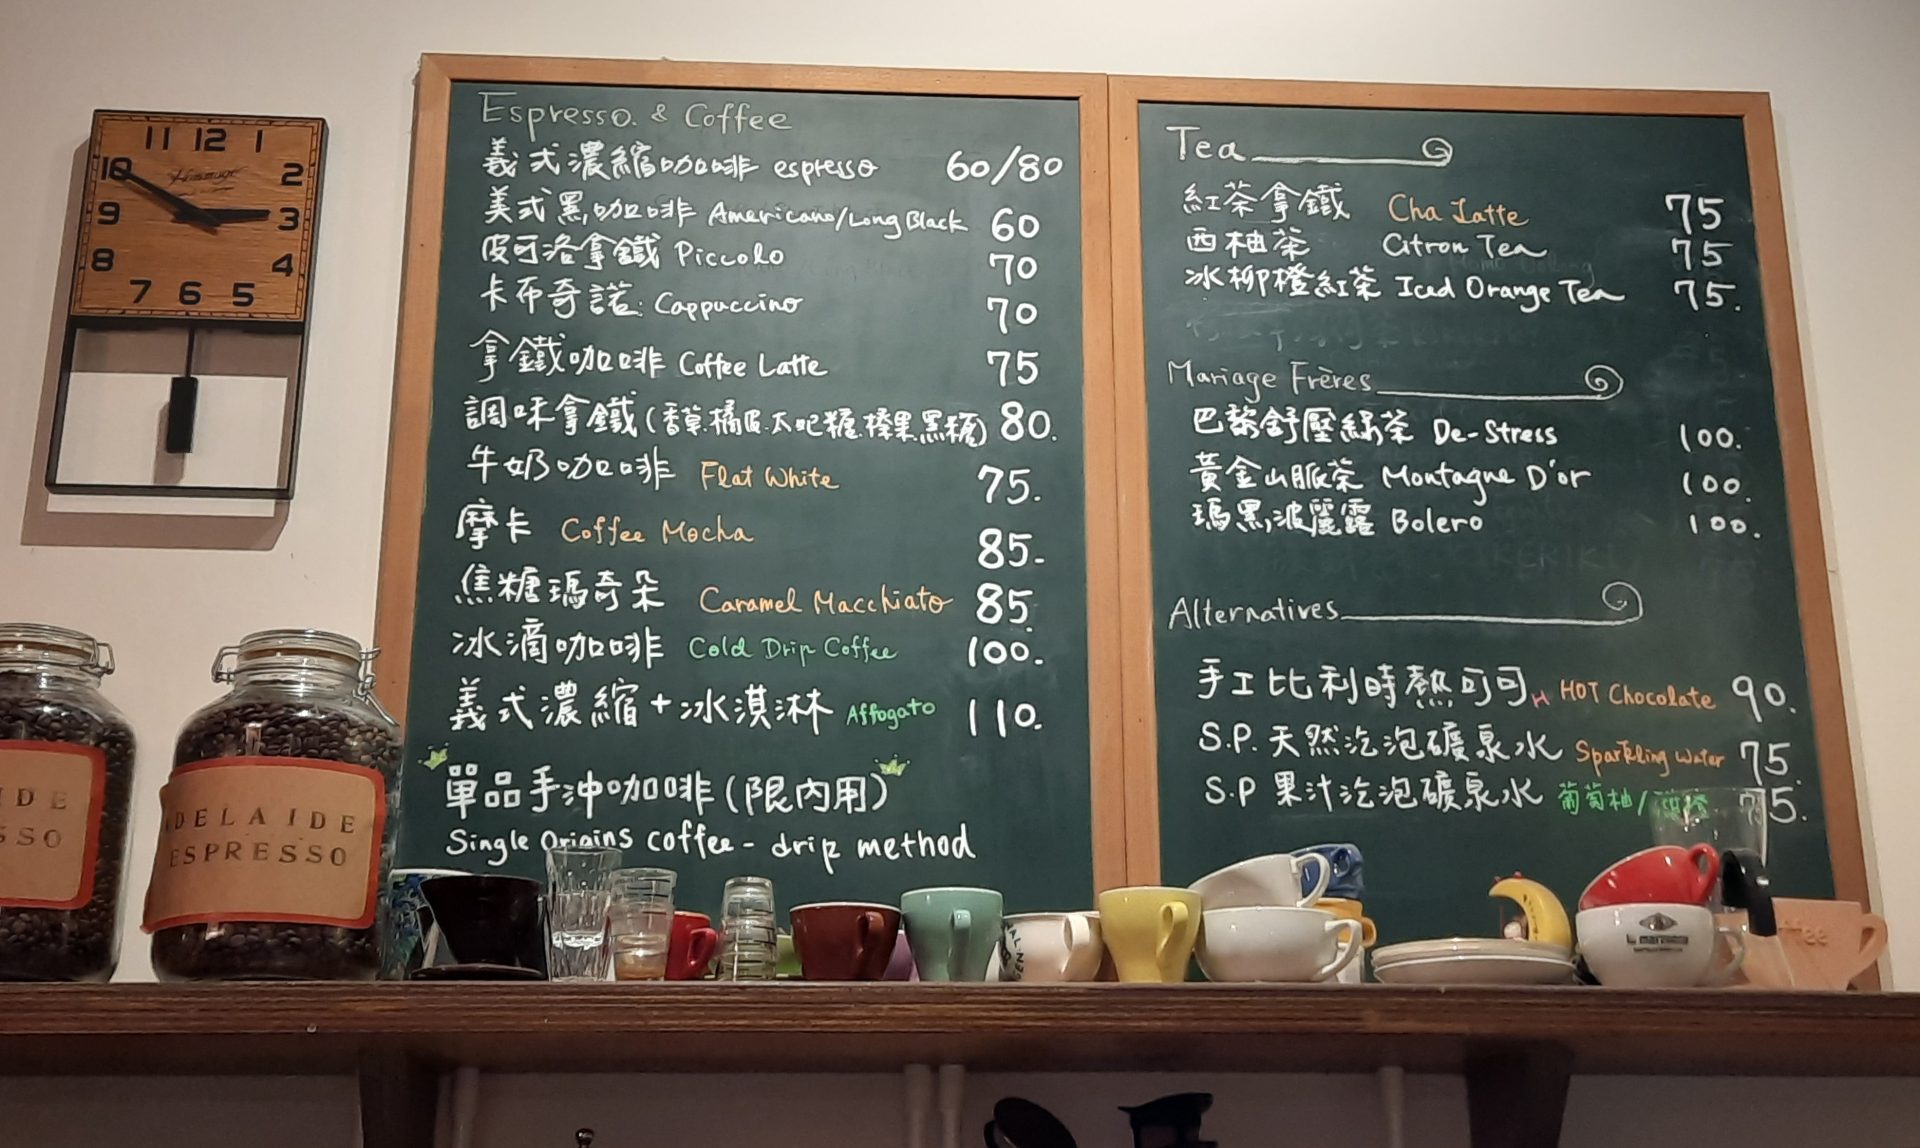 11 12 1
10 2
9 3
8 4
7 6 5
Espresso & Coffee
義式濃縮咖啡 espresso 60/80
美式黑咖啡 Americano/Long Black 60
皮可洛拿鐵 Piccolo 70
卡布奇諾 Cappuccino 70
拿鐵咖啡 Coffee Latte 75
調味拿鐵(香草.橘皮.太妃糖.榛果.黑糖) 80.
牛奶咖啡 Flat White 75.
摩卡 Coffee Mocha 85.-
焦糖瑪奇朵 Caramel Macchiato 85.
冰滴咖啡 Cold Drip Coffee 100.
義式濃縮+冰淇淋 Affogato 110.
單品手沖咖啡(限內用)
Single Origins coffee - drip method
Tea
紅茶拿鐵 Cha Latte 75
西柚茶 Citron Tea 75
冰柳橙紅茶 Iced Orange Tea 75.
Mariage Frères
巴黎舒壓綠茶 De-Stress 100.
黃金山脈茶 Montagne D'or 100.
瑪黑波麗露 Bolero 100.
Alternatives
手工比利時熱可可 HOT Chocolate 90.
S.P. 天然汽泡礦泉水 Sparkling Water 75.
S.P 果汁汽泡礦泉水 葡萄柚/ 75.
IDE
SSO
ADELAIDE
ESPRESSO